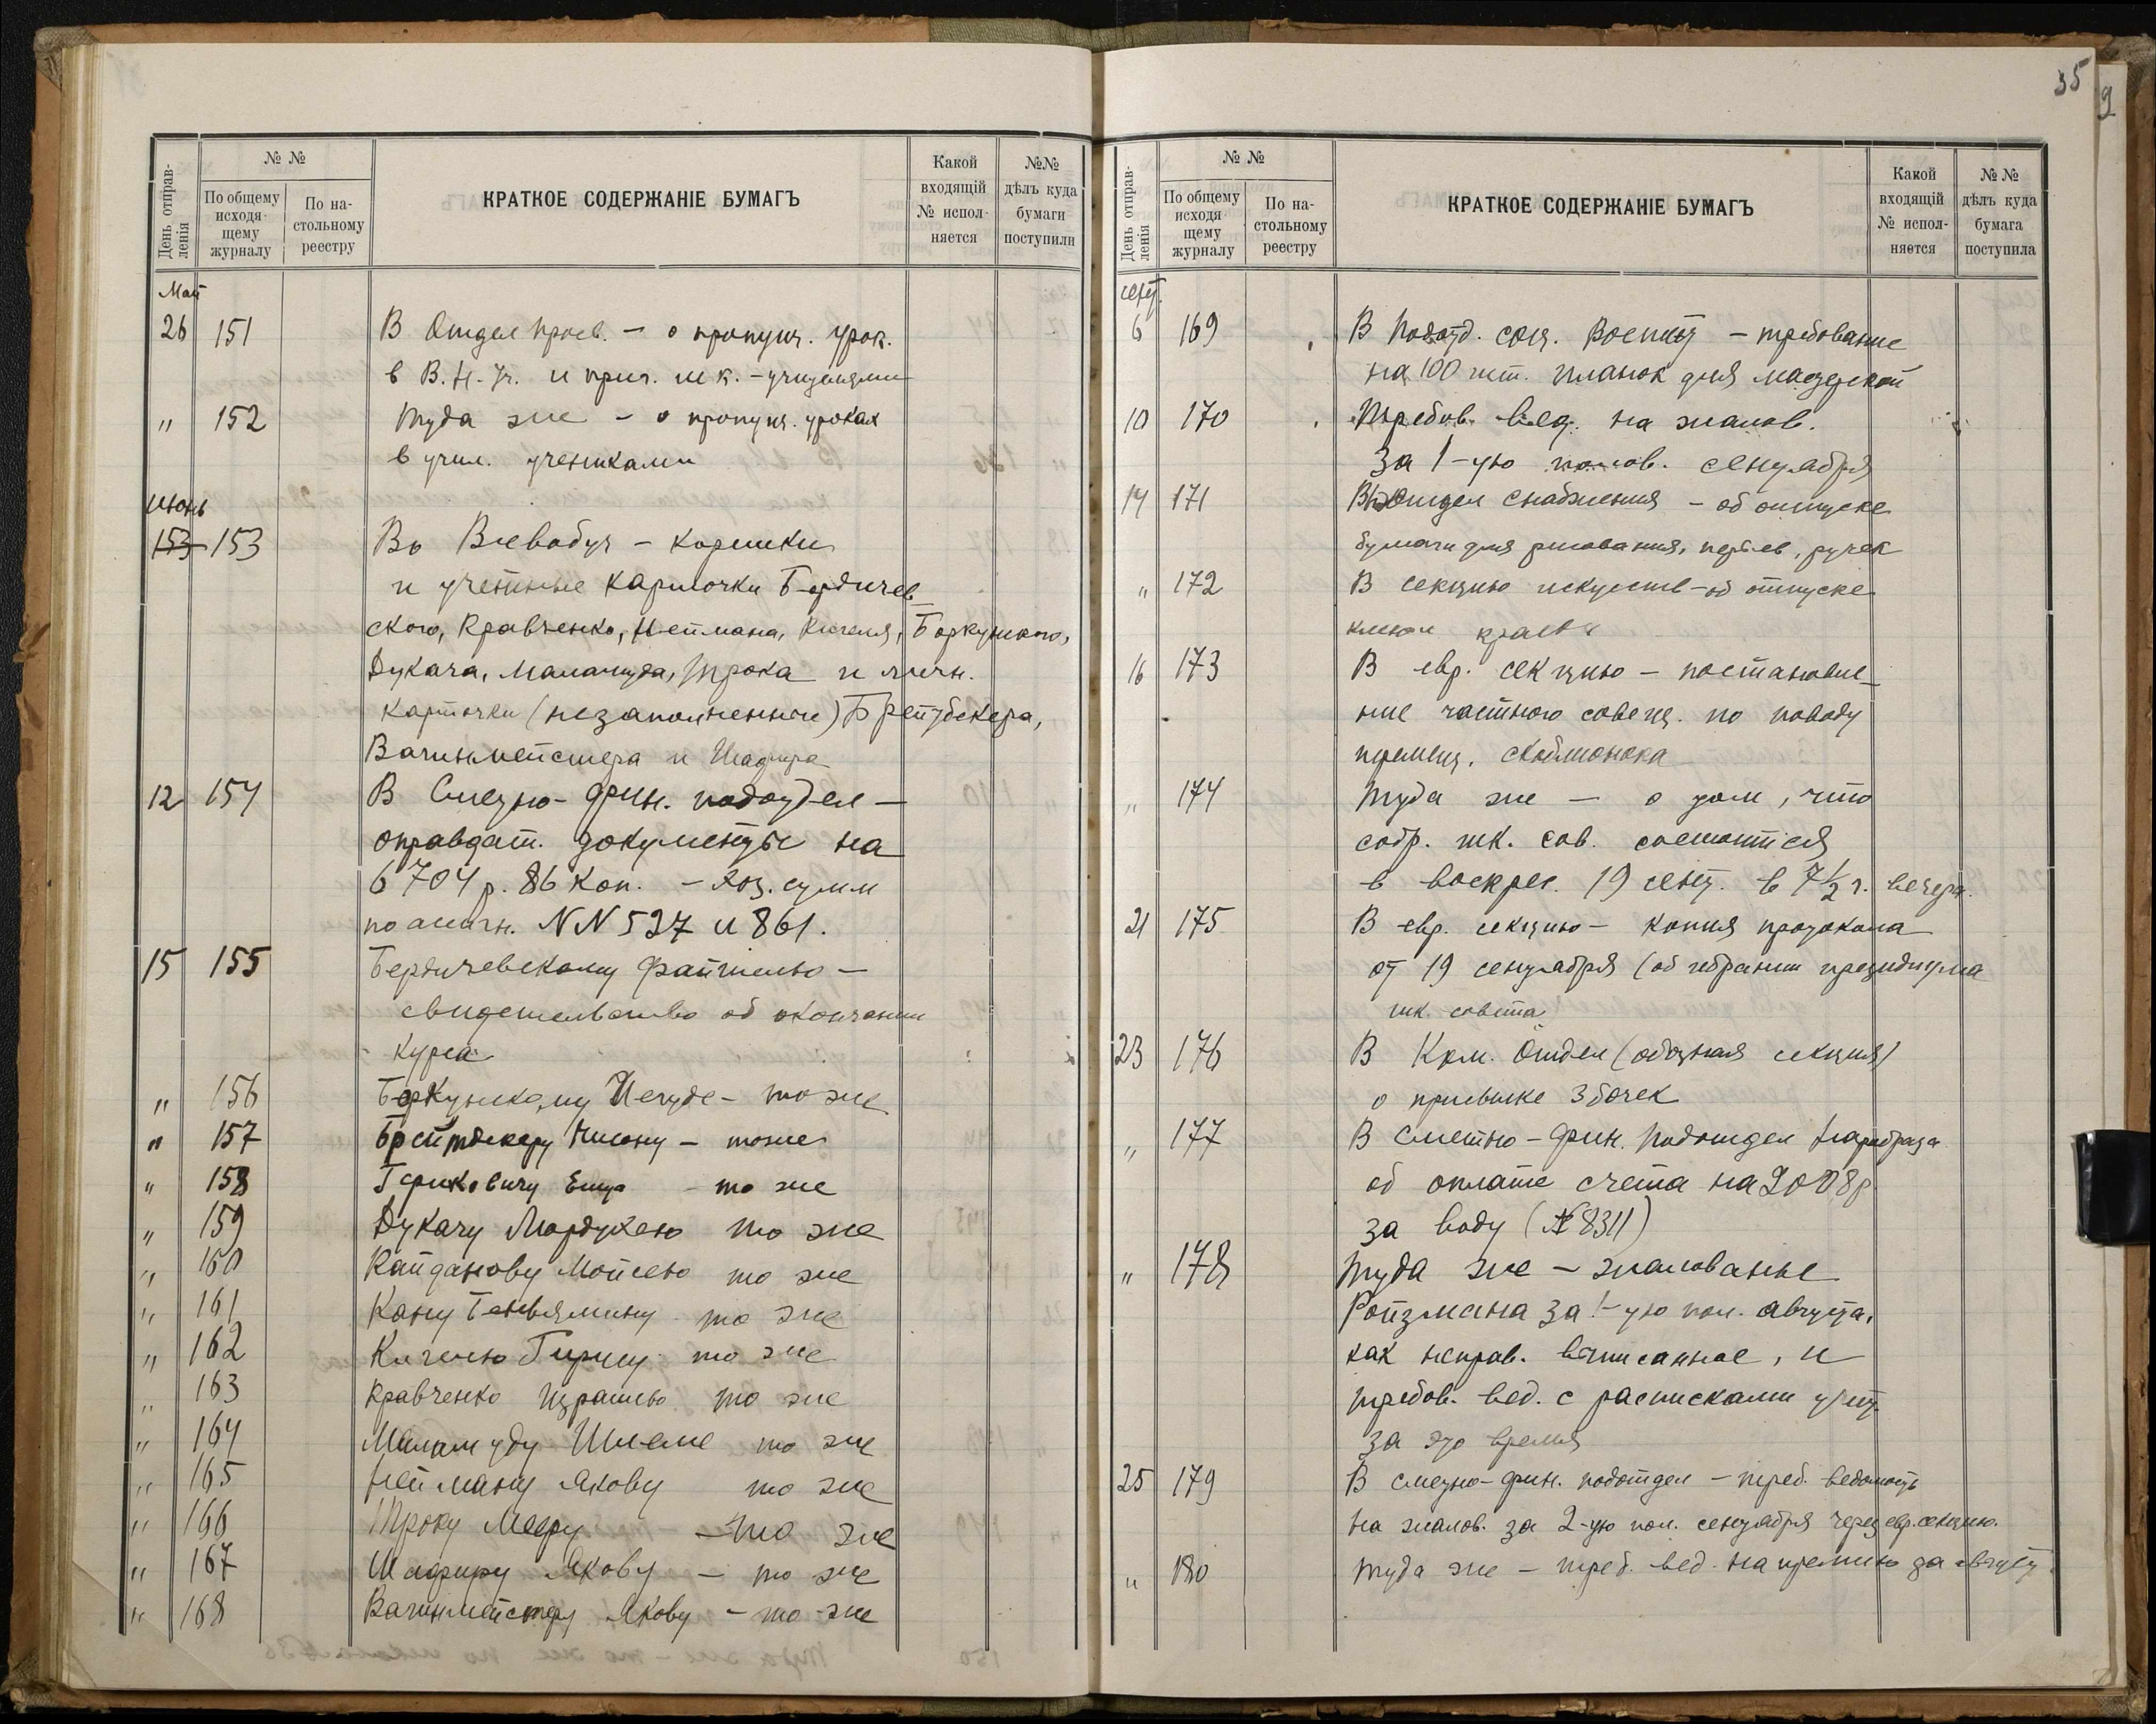 35
9
День отправ-
ленія
№ №
По общему
исходя-
щему
журналу
По на-
стольному
реестру
КРАТКОЕ СОДЕРЖАНІЕ БУМАГЪ
Какой
входящій
№ испол-
няется
№№
дѣлъ куда
бумаги
поступили
Май
26 151 В Отдел просв. – о пропущ. урок.
в В. Н. Уч. и прич. шк. – учителями
" 152 Туда же – о пропущ. уроках
в учил. учениками
Июнь
153 153 Во Всевобуч – корешки
и учетные карточки Бердичев-
ского, Кравченко, Неймана, Кигеля,
Дукача, Маламуда, Трока и личн.
карточки (незаполненные) Брейтбекера,
Вагинмейстера и Шафира
12 154 В Сметно-фин. подотдел –
оправдат. документы на
6704 р. 86 коп. – хоз. сумм
по ассигн. NN 527 и 861.
15 155 Бердичевскому Файтелю –
свидетельство об окончании
курса
" 156 Иегуде – то же
" 157 Брейтбекеру Нисону – тоже
" 158 – то же
" 159 Дукачу Мордухею то же
" 160 Кайданову Мойсею то же
" 161 Кану Беньямину то же
" 162 Кигелю Гиршу то же
" 163 Кравченко Израилю то же
" 164 Маламуду Шлеме то же
" 165 Нейману Якову то же
" 166 Троку Мееру – то же
" 167 Шафиру Якову – то же
" 168 Вагинмейстеру Якову – то же
День отправ-
ленія
№ №
По общему
исходя
щему
журналу
По на-
стольному
реестру
КРАТКОЕ СОДЕРЖАНІЕ БУМАГЪ
Какой
входящій
№ испол-
няется
№ №
дѣлъ куда
бумага
поступила
сент.
6 169 В Подотд. соц. Воспит – требование
на 100 шт. планок для мастерской
10 170 Требов. вед. на жалов.
за 1-ую полов. сентября
14 171 В Отдел снабжения – об отпуске
бумаги для рисования, перьев, ручек
" 172 В секцию искусств – об отпуске
16 173 В евр. секцию – постановле-
ние частного совещ. по поводу
" 174 Туда же – о том, что
собр. шк. сов. состоится
в воскрес. 19 сент. в 7 1/2 ч. вечера.
21 175 В евр. секцию – копия протокола
от 19 сентября (об избрании президиума
шк. совета
23 176 В Ком. Отдел (секция)
о присылке 3 бочек
" 177 В сметно-фин. Подотдел Наробраза
об оплате счета на 2008 р.
за воду (№ 8311)
" 178 Туда же – жалованье
Ройзмана за 1-ую пол. августа,
как неправ. выписанное, и
требов. вед. с расписками
за это время
25 179 В сметно-фин. подотдел – треб. ведомость
на жалов. за 2-ую пол. сентября через евр. секцию.
" 180 Туда же – треб. вед. на премию за август.